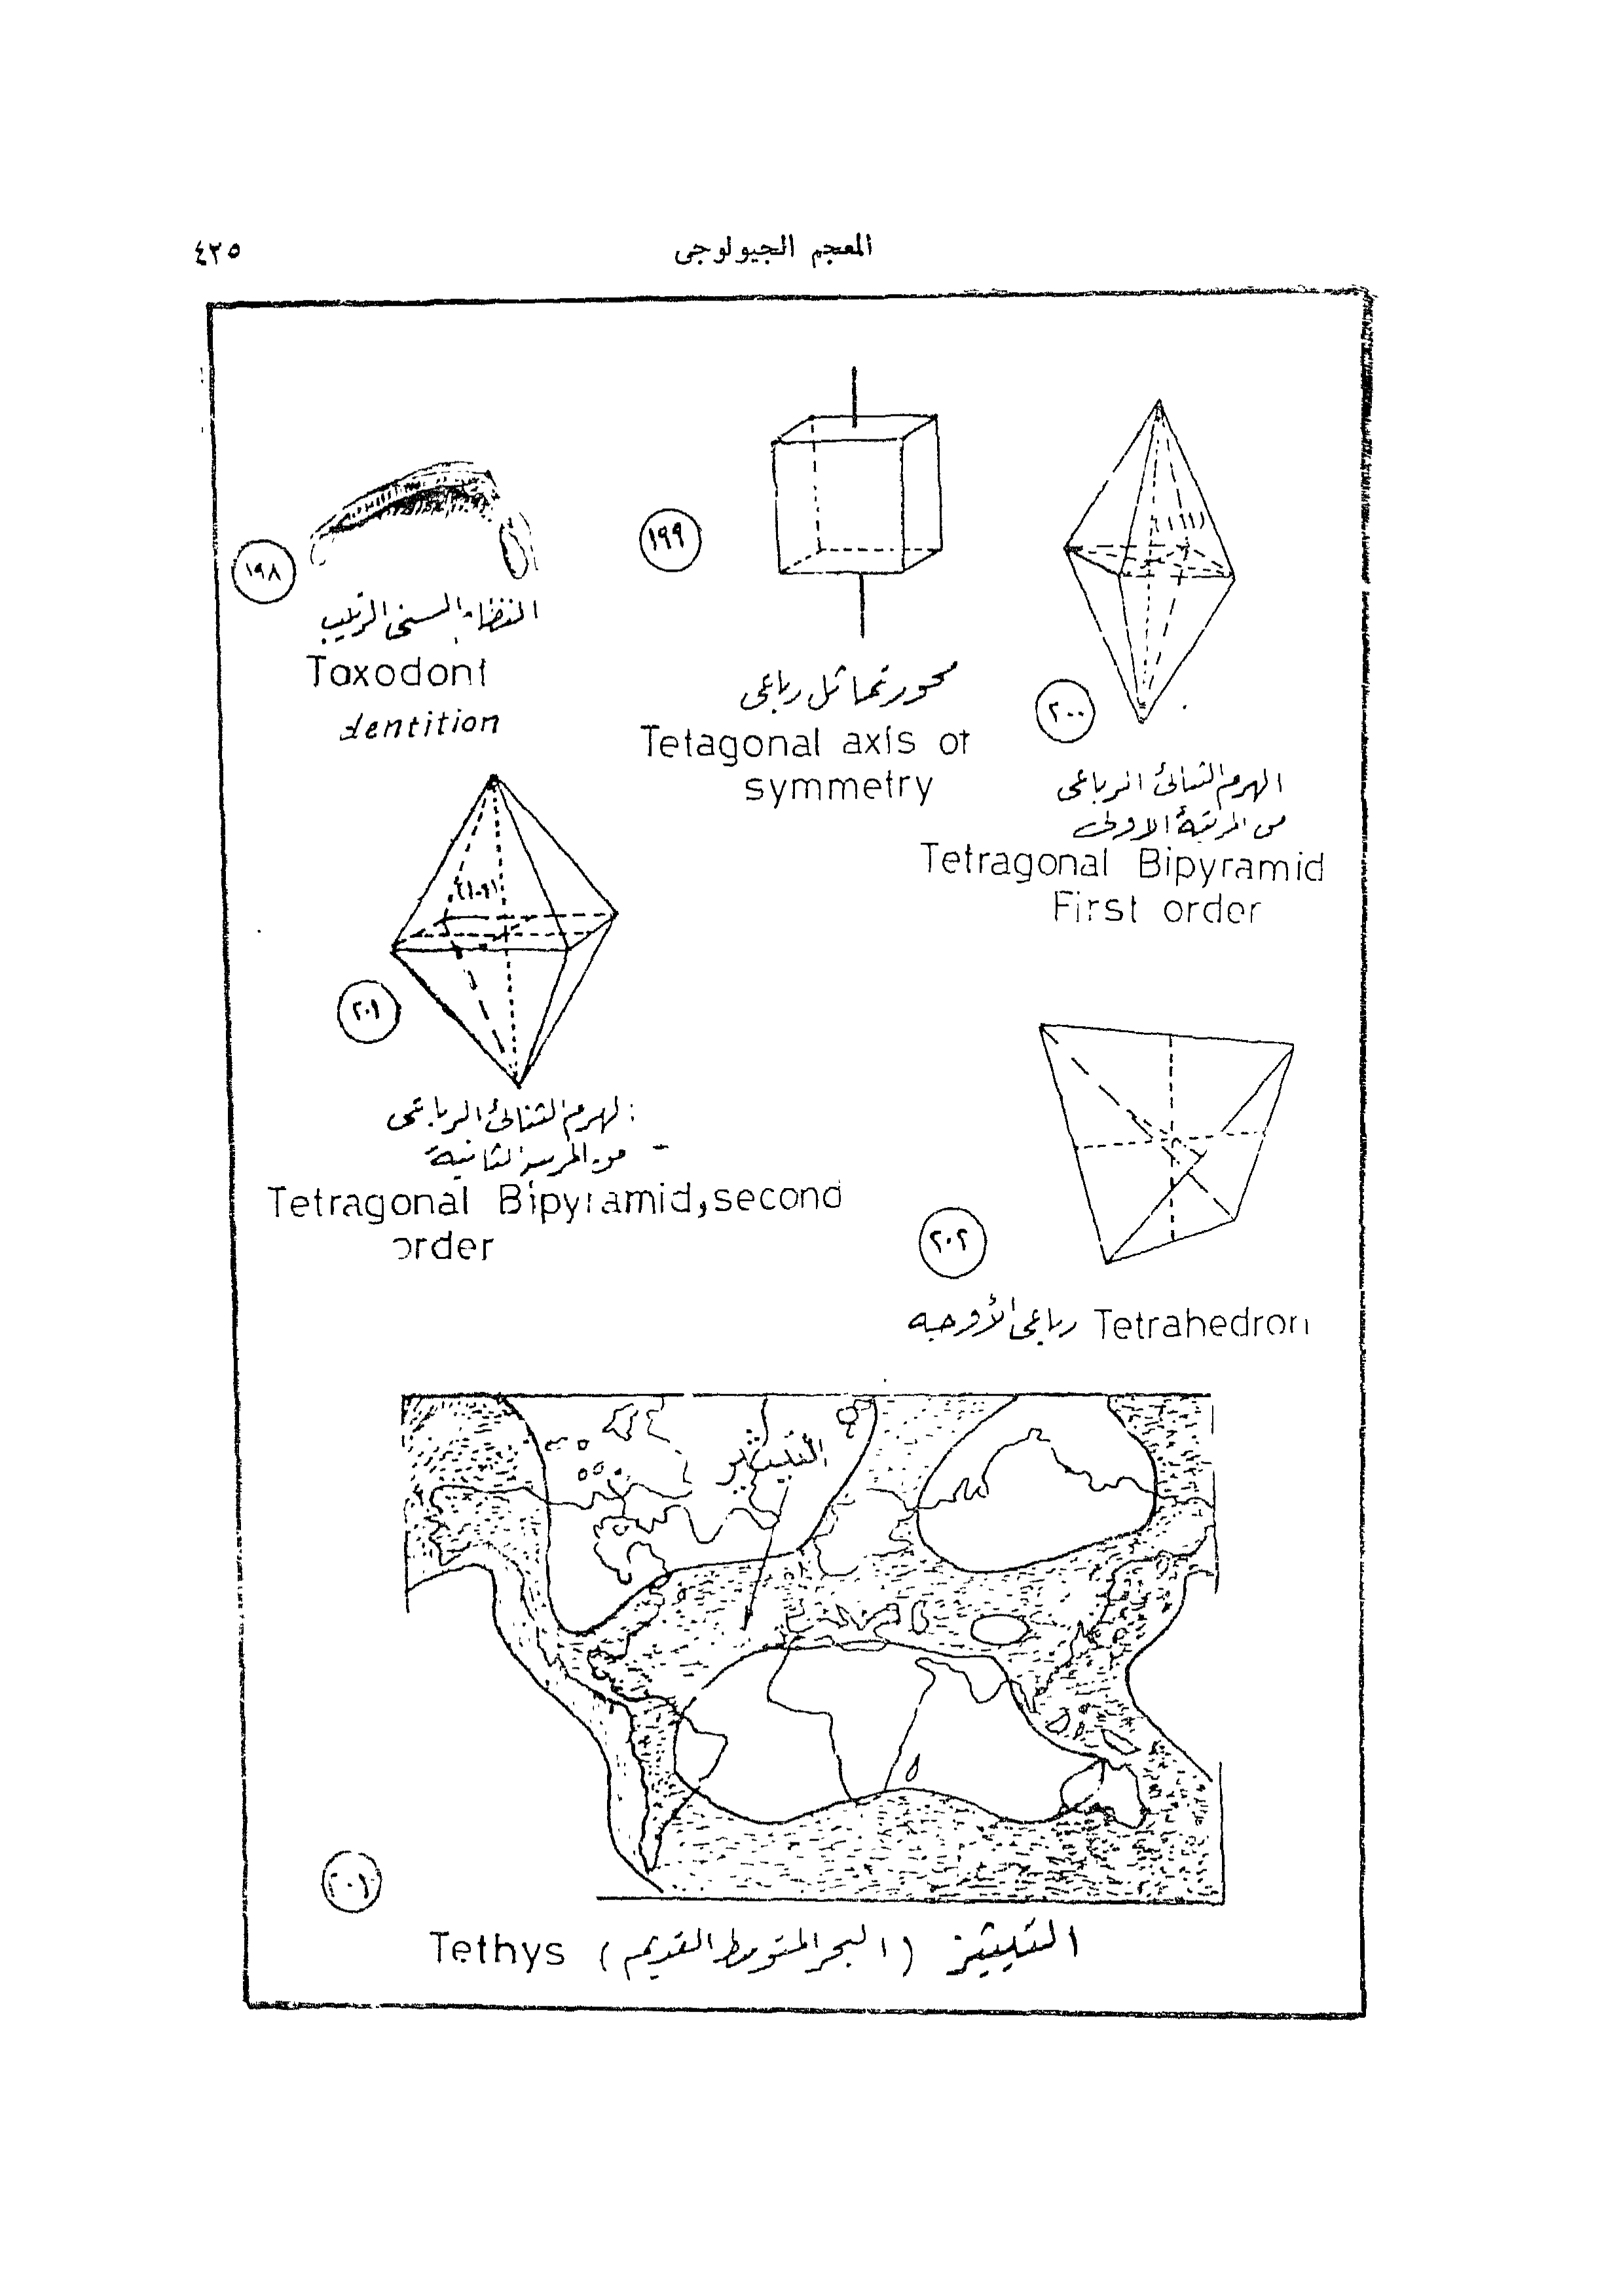 المعجم الجيولوجى
٤٢٥
١٩٨
النظام السنى الرتيب
Taxodont
dentition
١٩٩
محور تماثل رباعى
Tetagonal axis of
symmetry
{١١١}
٢٠٠
الهرم الثنائى الرباعى
من المرتبة الاولى
Tetragonal Bipyramid
First order
٢٠١
الهرم الثنائى الرباعى
من المرتبة الثانية
Tetragonal Bipyramid, second
order
٢٠٢
رباعى الأوجه Tetrahedron
التيثيز
التيثيز (البحر المتوسط القديم) Tethys